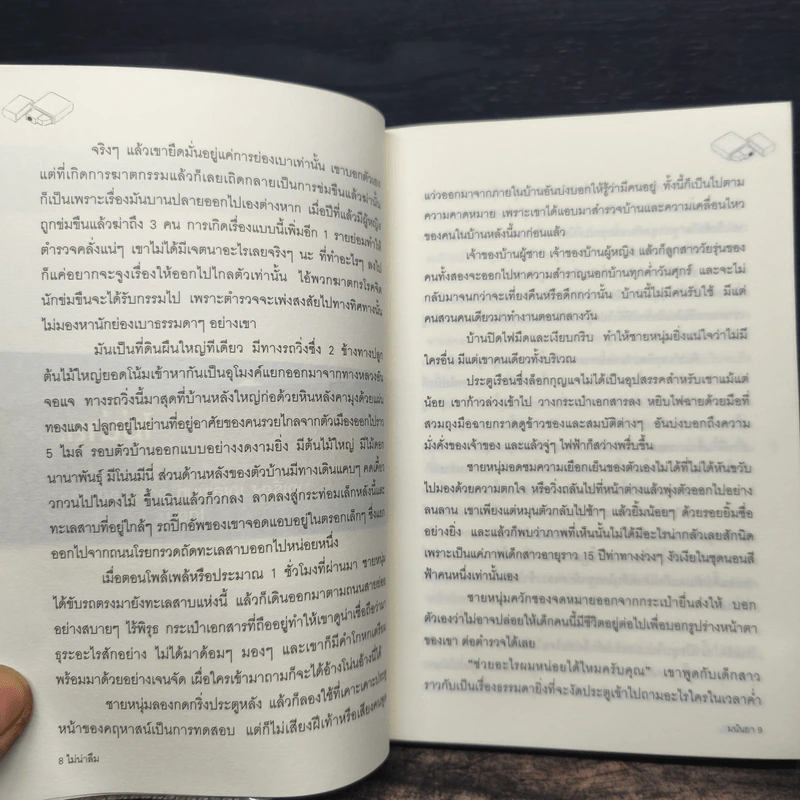 จริงๆ แล้วเขายึดมั่นอยู่แค่การย่องเบาเท่านั้น เขาบอกตัวเอง
แต่ที่เกิดการฆาตกรรมแล้วก็เลยเถิดกลายเป็นการข่มขืนแล้วฆ่านั้น
ก็เป็นเพราะเรื่องมันบานปลายออกไปเองต่างหาก เมื่อปีที่แล้วมีผู้หญิง
ถูกข่มขืนแล้วฆ่าถึง 3 คน การเกิดเรื่องแบบนี้เพิ่มอีก 1 รายย่อมทำให้
ตำรวจคลั่งแน่ๆ เขาไม่ได้มีเจตนาอะไรเลยจริงๆ นะ ที่ทำอะไรๆ ลงไป
ก็แค่อยากจะจูงเรื่องให้ออกไปไกลตัวเท่านั้น ไอ้พวกฆาตกรโรคจิต
นักข่มขืนจะได้รับกรรมไป เพราะตำรวจจะเพ่งสงสัยไปทางทิศทางนั้น
ไม่มองหานักย่องเบาธรรมดาๆ อย่างเขา
มันเป็นที่ดินผืนใหญ่ทีเดียว มีทางรถวิ่งซึ่ง 2 ข้างทางปลูก
ต้นไม้ใหญ่ยอดโน้มเข้าหากันเป็นอุโมงค์แยกออกมาจากทางหลวงอัน
จอแจ ทางรถวิ่งนี้มาสุดที่บ้านหลังใหญ่ก่อด้วยหินหลังคามุงด้วยแผ่น
ทองแดง ปลูกอยู่ในย่านที่อยู่อาศัยของคนรวยไกลจากตัวเมืองออกไปราว
5 ไมล์ รอบตัวบ้านออกแบบอย่างงดงามยิ่ง มีต้นไม้ใหญ่ มีไม้ดอก
นานาพันธุ์ มีโน่นมีนี่ ส่วนด้านหลังของตัวบ้านมีทางเดินแคบๆ คดเคี้ยว
วกวนไปในดงไม้ ขึ้นเนินแล้วก็วกลง ลาดลงสู่กระท่อมเล็กหลังนี้และ
ทะเลสาบที่อยู่ใกล้ๆ รถปิ๊กอัพของเขาจอดแอบอยู่ในตรอกเล็กๆ ซึ่งแยก
ออกไปจากถนนโรยกรวดถัดทะเลสาบออกไปหน่อยหนึ่ง
เมื่อตอนโพล้เพล้หรือประมาณ 1 ชั่วโมงที่ผ่านมา ชายหนุ่ม
ได้ขับรถตรงมายังทะเลสาบแห่งนี้ แล้วก็เดินออกมาตามถนนสายย่อย
อย่างสบายๆ ไร้พิรุธ กระเป๋าเอกสารที่ถืออยู่ทำให้เขาดูน่าเชื่อถือว่ามา
ธุระอะไรสักอย่าง ไม่ได้มาด้อมๆ มองๆ และเขาก็มีคำโกหกเตรียม
พร้อมมาด้วยอย่างเจนจัด เผื่อใครเข้ามาถามก็จะได้อ้างโน่นอ้างนี่ได้
ชายหนุ่มลองกดกริ่งประตูหลัง แล้วก็ลองใช้ที่เคาะเคาะประตู
หน้าของคฤหาสน์เป็นการทดสอบ แต่ก็ไม่เสียงฝีเท้าหรือเสียงคนพูด
8 ไม่น่าลืม
แว่วออกมาจากภายในบ้านอันบ่งบอกให้รู้ว่ามีคนอยู่ ทั้งนี้ก็เป็นไปตาม
ความคาดหมาย เพราะเขาได้แอบมาสำรวจบ้านและความเคลื่อนไหว
ของคนในบ้านหลังนี้มาก่อนแล้ว
เจ้าของบ้านผู้ชาย เจ้าของบ้านผู้หญิง แล้วก็ลูกสาววัยรุ่นของ
คนทั้งสองจะออกไปหาความสำราญนอกบ้านทุกค่ำวันศุกร์ และจะไม่
กลับมาจนกว่าจะเที่ยงคืนหรือดึกกว่านั้น บ้านนี้ไม่มีคนรับใช้ มีแต่
คนสวนคนเดียวมาทำงานตอนกลางวัน
บ้านปิดไฟมืดและเงียบกริบ ทำให้ชายหนุ่มยิ่งแน่ใจว่าไม่มี
ใครอื่น มีแต่เขาคนเดียวทั้งบริเวณ
ประตูเรือนซึ่งล็อกกุญแจไม่ได้เป็นอุปสรรคสำหรับเขาแม้แต่
น้อย เขาก้าวล่วงเข้าไป วางกระเป๋าเอกสารลง หยิบไฟฉายด้วยมือที่
สวมถุงมือฉายกราดดูข้าวของและสมบัติต่างๆ อันบ่งบอกถึงความ
มั่งคั่งของเจ้าของ และแล้วจู่ๆ ไฟฟ้าก็สว่างพรึ่บขึ้น
ชายหนุ่มอดชมความเยือกเย็นของตัวเองไม่ได้ที่ไม่ได้หันขวับ
ไปมองด้วยความตกใจ หรือวิ่งถลันไปที่หน้าต่างแล้วพุ่งตัวออกไปอย่าง
ลนลาน เขาเพียงแต่หมุนตัวกลับไปช้าๆ แล้วยิ้มน้อยๆ ด้วยรอยยิ้มซื่อ
อย่างยิ่ง และแล้วก็พบว่าภาพที่เห็นนั้นไม่ได้มีอะไรน่ากลัวเลยสักนิด
เพราะเป็นแค่ภาพเด็กสาวอายุราว 15 ปีท่าทางง่วงๆ งัวเงียในชุดนอนสี
ฟ้าคนหนึ่งเท่านั้นเอง
ชายหนุ่มควักซองจดหมายออกจากกระเป๋ายื่นส่งให้ บอก
ตัวเองว่าไม่อาจปล่อยให้เด็กคนนี้มีชีวิตอยู่ต่อไปเพื่อบอกรูปร่างหน้าตา
ของเขา ต่อตำรวจได้เลย
"ช่วยอะไรผมหน่อยได้ไหมครับคุณ" เขาพูดกับเด็กสาว
ราวกับเป็นเรื่องธรรมดายิ่งที่จะงัดประตูเข้าไปถามอะไรใครในเวลาค่ำ
มนันยา 9